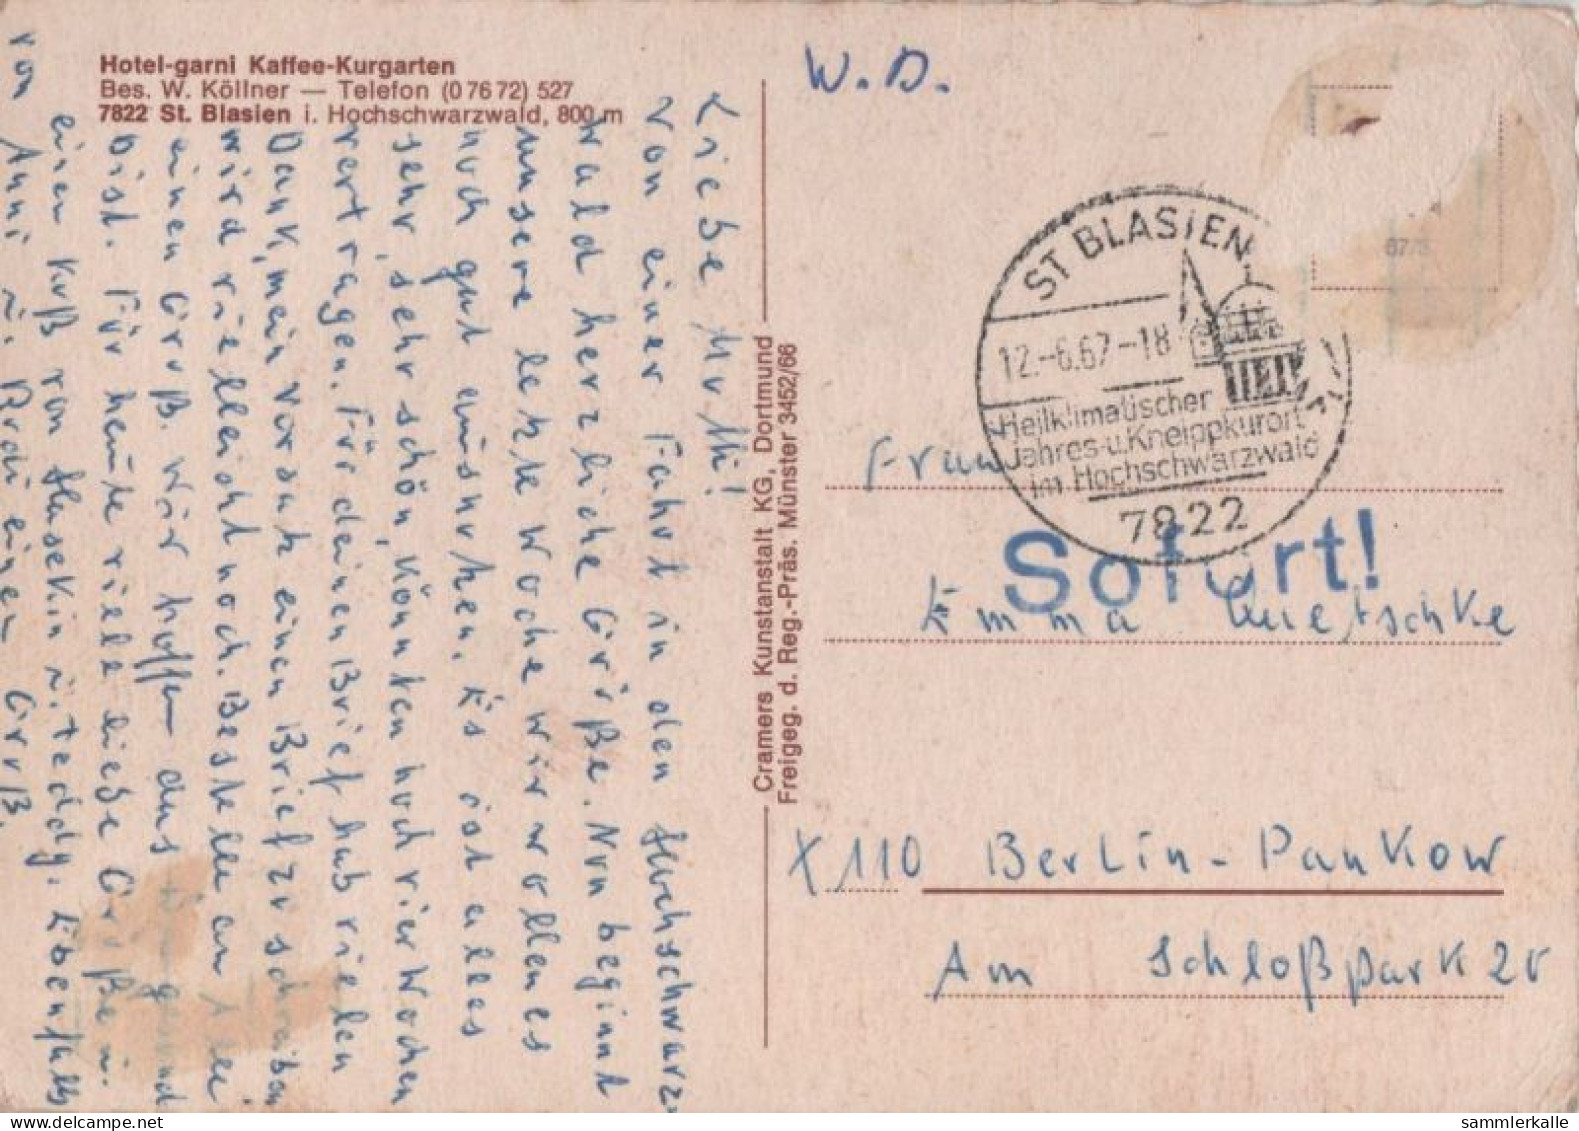 Hotel-garni Kaffee-Kurgarten
Bes. W. Köllner — Telefon (0 76 72) 527
7822 St. Blasien i. Hochschwarzwald, 800 m
Liebe Mutti!
Von einer Fahrt in den Hochschwarz-
wald herzliche Grüße. Nun beginnt
unsere letzte Woche wir wollen es
noch gut ausnutzen. Es ist alles
sehr, sehr schön, könnten noch vier Wochen
vertragen. Für deinen Brief hab vielen
Dank, mein Vorsatz einen Brief zu schreiben
wird vielleicht noch. Bestelle an
einen Gruß. Wir hoffen das Du gesund
bist. Für heute viele liebe Grüße u.
einen Kuß von Hasekin u. Teddy. Ebenfalls
von Anni u. einen Gruß.
Cramers Kunstanstalt KG, Dortmund
Freigeg. d. Reg.-Präs. Münster 3452/66
W. D.
67/8
ST BLASIEN
12.-6.67-18
Heilklimatischer
Jahres-u. Kneippkurort
im Hochschwarzwald
7822
Sofort!
Frau
Emma Quietschke
X 110 Berlin-Pankow
Am Schloßpark 20
sammlerkalle